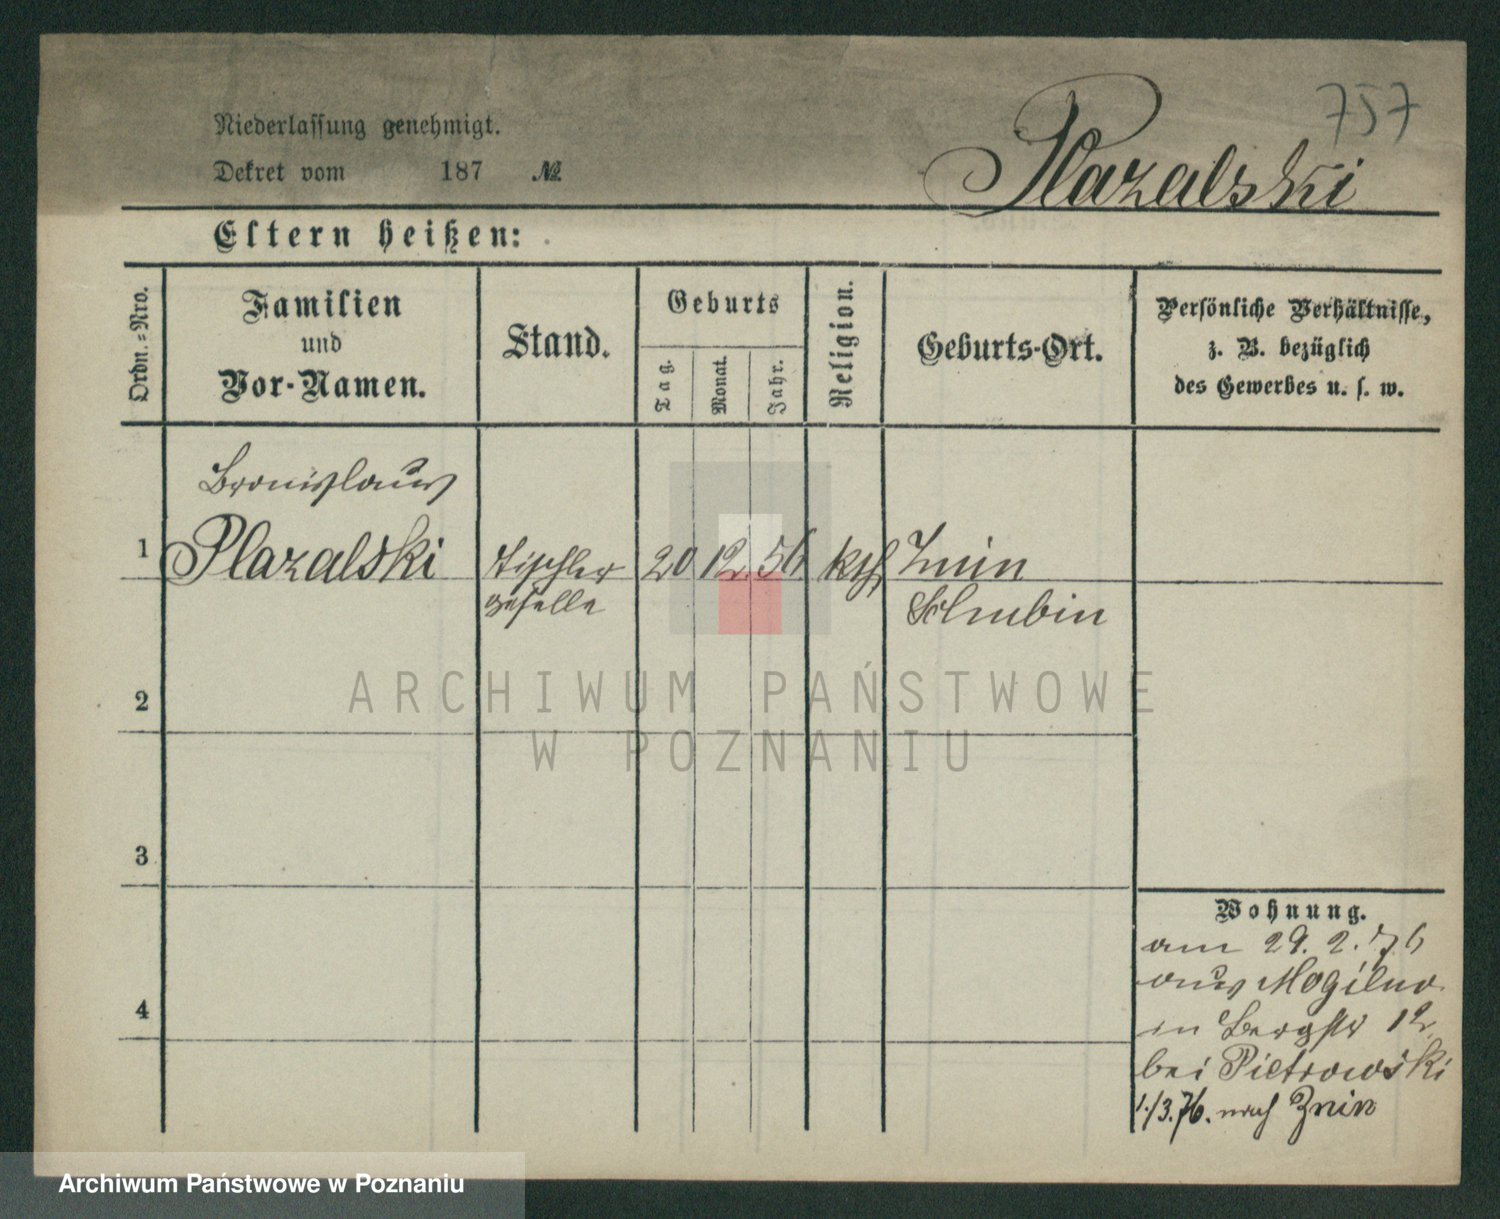 757
Niederlassung genehmigt.
Dekret vom 187 №
Plazalski
Eltern heißen:
Ordn.=Nro.
Familien
und
Vor-Namen.
Stand.
Geburts
Tag.
Monat.
Jahr.
Religion.
Geburts-Ort.
Persönliche Verhältnisse,
z. B. bezüglich
des Gewerbes u. s. w.
Bronislaus
1 Plazalski Tischler 20 12 56 kth Znin
geselle Schubin
2
ARCHIWUM PAŃSTWOWE
W POZNANIU
3
Wohnung.
am 29. 2. 76
aus Mogilno
in Bergstr 12
bei Pietrowski
1./3. 76. nach Znin
4
Archiwum Państwowe w Poznaniu